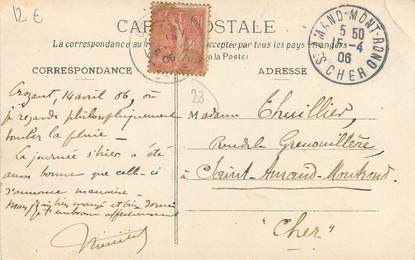 12€
CARTE POSTALE
La correspondance au acceptée par tous les pays
à la Poste)
CORRESPONDANCE
ADRESSE
St AMAND-MONT-ROND
5 50
-4
06
CHER
23
Crozant, 14 avril 06, où
je regarde philosophiquement
tomber la pluie —
La journée d'hier a été
aussi bonne que celle-ci
s'annonce mauvaise —
Mais j'ai bien mangé et bien dormi
je t'embrasse affectueusement
Madame Thuillier
Rue de la Grenouillère
à Saint-Amand-Montrond
"Cher"